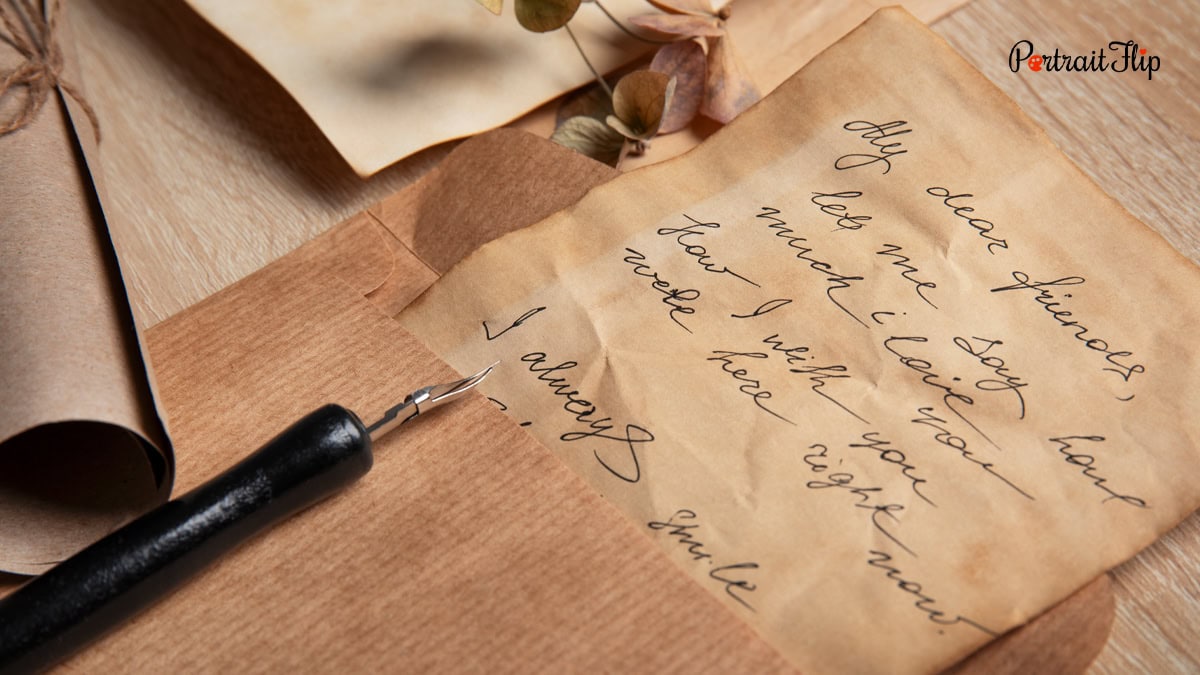 PortraitFlip
My dear friends,
let me say how
much i love you
How I wish you
were here right now.
I always smile